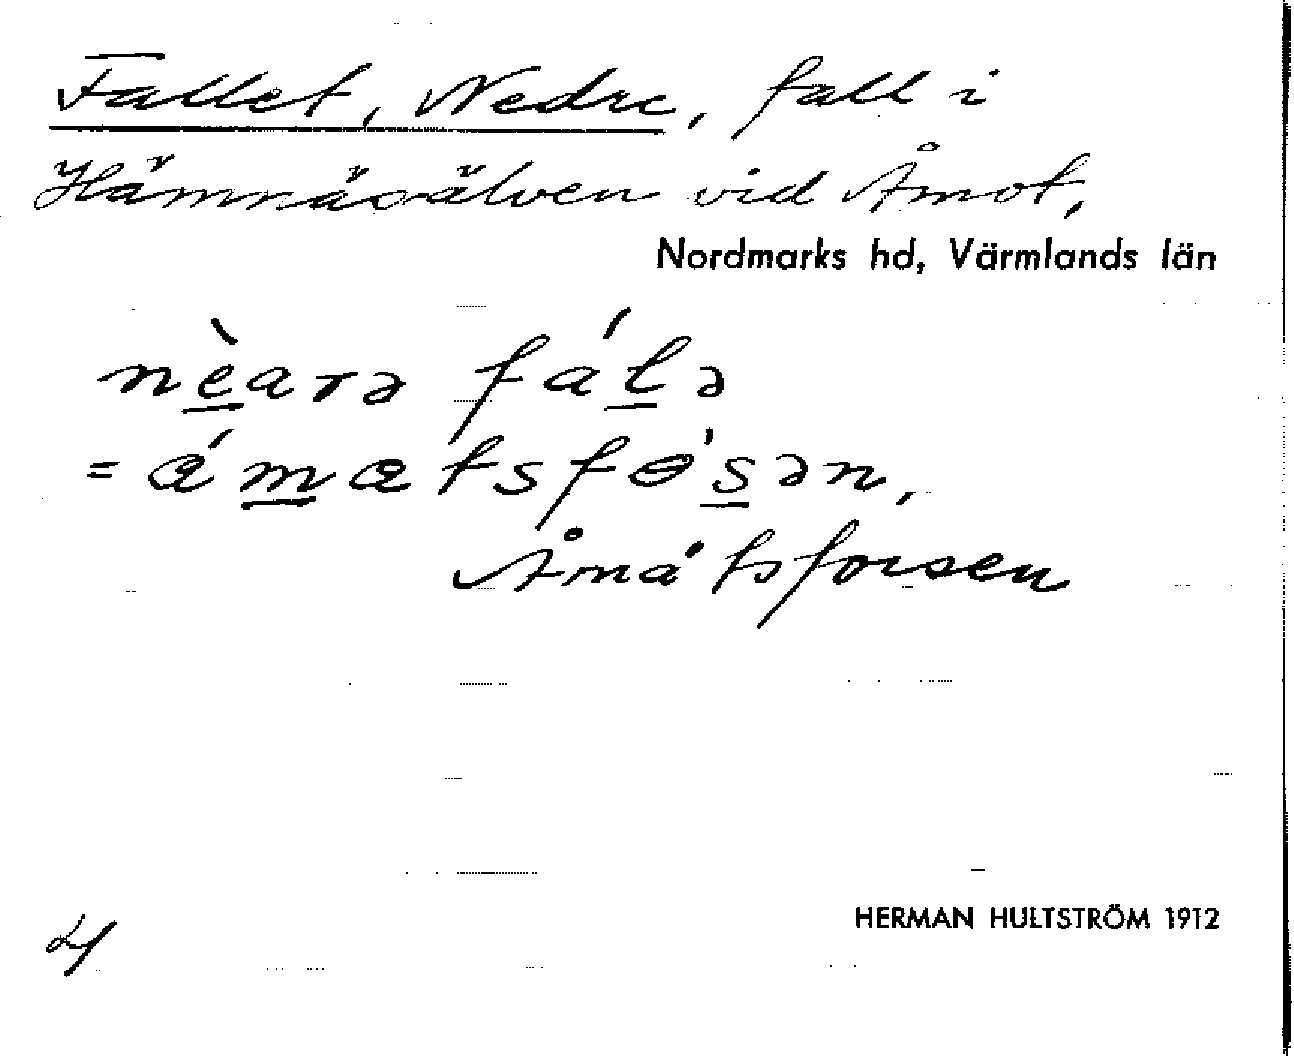 Fallet, Nedre, fall i
Hämnäsälven vid Åmot,
Nordmarks hd, Värmlands län
nèarə fálə
= ámatsfɵ́sən,
Åmåtsforsen
HERMAN HULTSTRÖM 1912